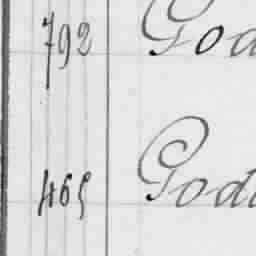 792 God
465 God